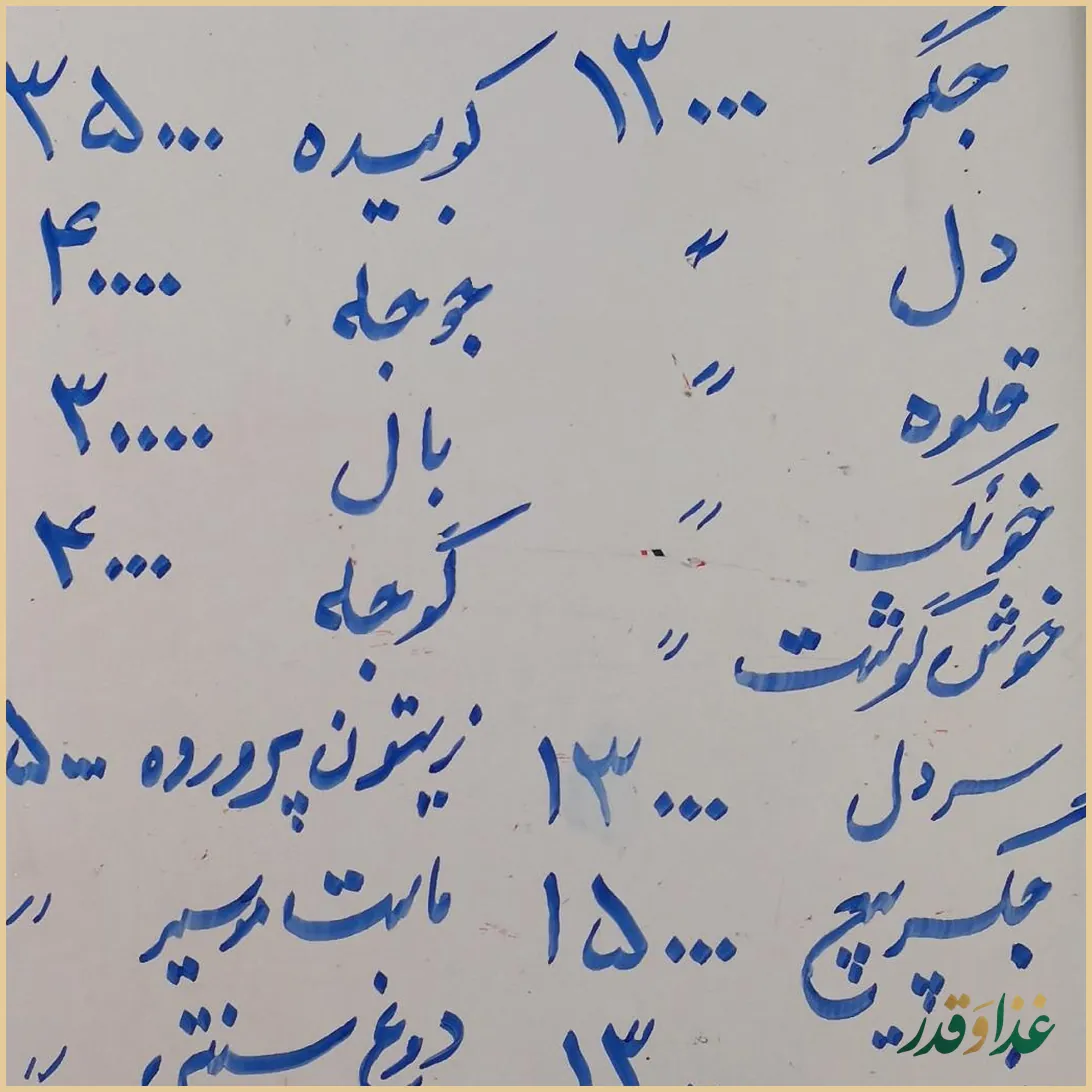 جگر ۱۳۰۰۰
دل "
قلوه "
خوئک "
خوش گوشت "
سردل ۱۳۰۰۰
جگر پیچ ۱۵۰۰۰
۱۳
کوبیده ۳۵۰۰۰
جوجه ۴۰۰۰۰
بال ۳۰۰۰۰
گوجه ۴۰۰۰
زیتون پرورده ۵۰۰۰
ماست موسیر "
دوغ سنتی "
غذا و قدر